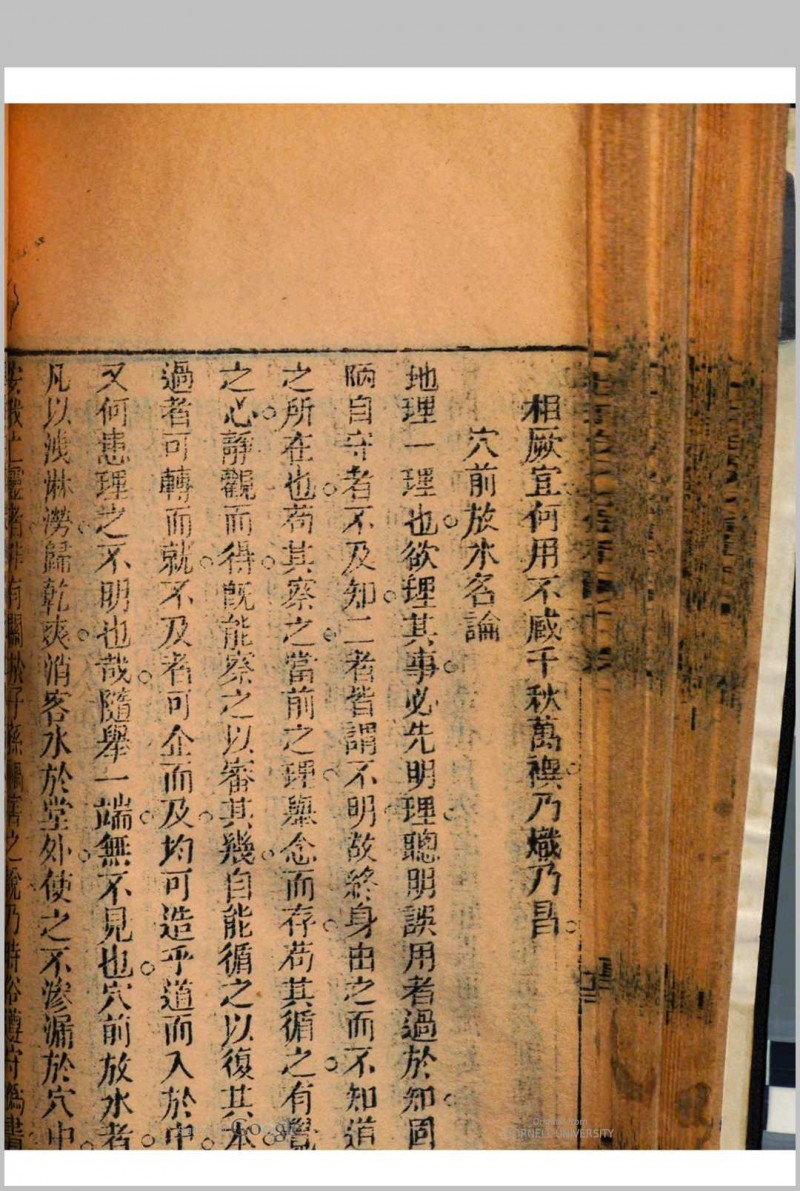 相厥宜何用不臧千秋萬禩乃熾乃昌
穴前放水名論
地理一理也欲理其事必先明理聰明誤用者過於知固
陋自守者不及知二者皆謂不明故終身由之而不知道
之所在也苟其察之當前之理舉念而存苟其循之有覺
之心靜觀而得旣能察之以審其幾自能循之以復其本
過者可轉而就不及者可企而及均可造乎道而入於中
又何患理之不明也哉隨舉一端無不見也穴前放水者
凡以洩淋澇歸乾爽消客水於堂外使之不滲漏於穴中
之靈者非有關於子孫禍害之說乃時俗
CORNELL UNIVERSITY